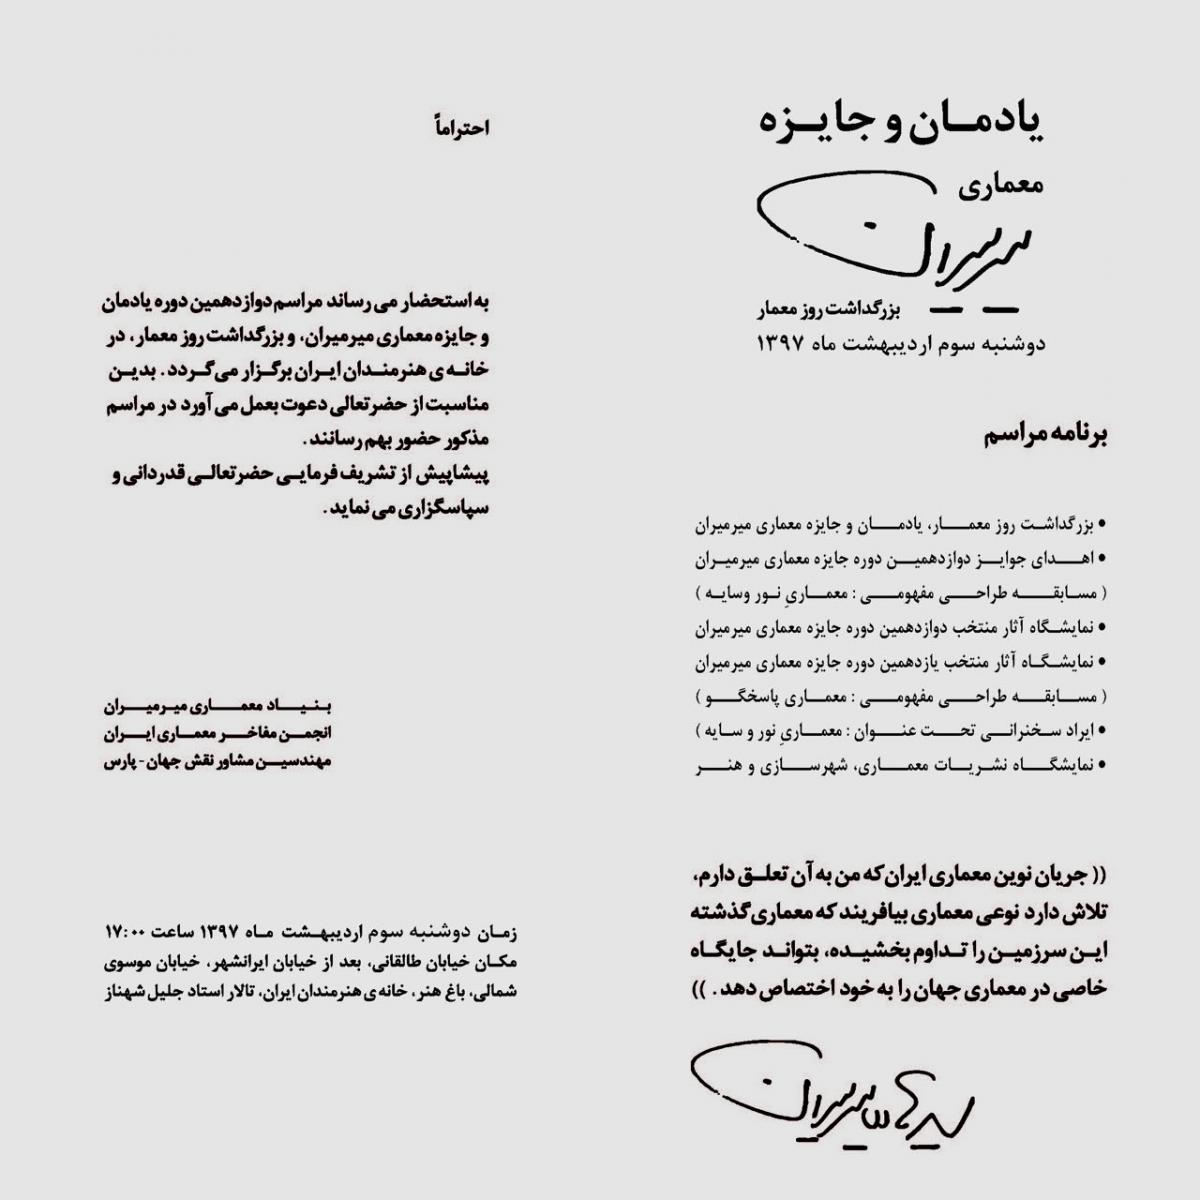 یادمان و جایزه
معماری
میرمیران
بزرگداشت روز معمار
دوشنبه سوم اردیبهشت ماه ۱۳۹۷
برنامه مراسم
• بزرگداشت روز معمار، یادمان و جایزه معماری میرمیران
• اهدای جوایز دوازدهمین دوره جایزه معماری میرمیران
( مسابقه طراحی مفهومی : معماریِ نور وسایه )
• نمایشگاه آثار منتخب دوازدهمین دوره جایزه معماری میرمیران
• نمایشگاه آثار منتخب یازدهمین دوره جایزه معماری میرمیران
( مسابقه طراحی مفهومی : معماری پاسخگو )
• ایراد سخنرانی تحت عنوان : معماریِ نور و سایه )
• نمایشگاه نشریات معماری، شهرسازی و هنر
(( جریان نوین معماری ایران که من به آن تعلق دارم،
تلاش دارد نوعی معماری بیافریند که معماری گذشته
این سرزمین را تداوم بخشیده، بتواند جایگاه
خاصی در معماری جهان را به خود اختصاص دهد. ))
احتراماً
به استحضار می رساند مراسم دوازدهمین دوره یادمان
و جایزه معماری میرمیران، و بزرگداشت روز معمار، در
خانه ی هنرمندان ایران برگزار می گردد. بدین
مناسبت از حضرتعالی دعوت بعمل می آورد در مراسم
مذکور حضور بهم رسانند.
پیشاپیش از تشریف فرمایی حضرتعالی قدردانی و
سپاسگزاری می نماید.
بنیاد معماری میرمیران
انجمن مفاخر معماری ایران
مهندسین مشاور نقش جهان - پارس
زمان دوشنبه سوم اردیبهشت ماه ۱۳۹۷ ساعت ۱۷:۰۰
مکان خیابان طالقانی، بعد از خیابان ایرانشهر، خیابان موسوی
شمالی، باغ هنر، خانه ی هنرمندان ایران، تالار استاد جلیل شهناز